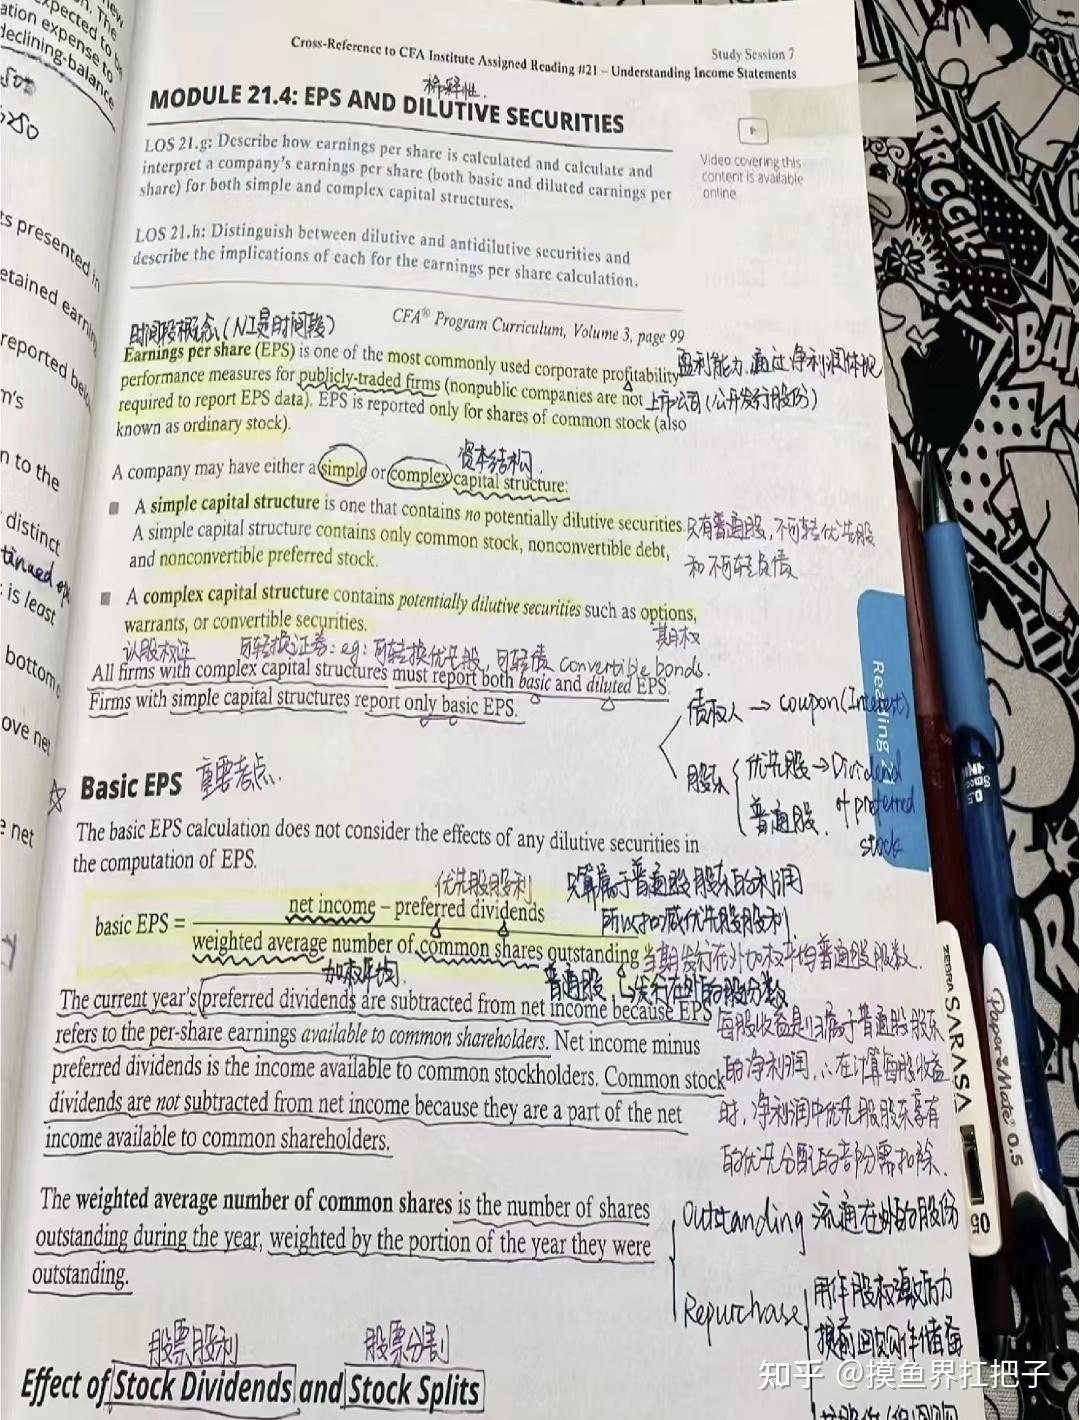 new
on. The
expected to be
ation expense to
declining-balance
Cross-Reference to CFA Institute Assigned Reading #21 – Understanding Income Statements
Study Session 7
稀释性.
MODULE 21.4: EPS AND DILUTIVE SECURITIES
LOS 21.g: Describe how earnings per share is calculated and calculate and
interpret a company's earnings per share (both basic and diluted earnings per
share) for both simple and complex capital structures.
Video covering this
content is available
online
LOS 21.h: Distinguish between dilutive and antidilutive securities and
describe the implications of each for the earnings per share calculation.
ts presented in
etained earnin
reported belo
m's
n to the
distinct
tinued op
is least
bottom
ove net
e net
CFA® Program Curriculum, Volume 3, page 99
时间段概念(NI是时间段)
Earnings per share (EPS) is one of the most commonly used corporate profitability 盈利能力,通过净利润体现
performance measures for publicly-traded firms (nonpublic companies are not 上市公司(公开发行股份)
required to report EPS data). EPS is reported only for shares of common stock (also
known as ordinary stock).
资本结构.
A company may have either a simple or complex capital structure:
■ A simple capital structure is one that contains no potentially dilutive securities. 只有普通股,不可转优先股
A simple capital structure contains only common stock, nonconvertible debt,
and nonconvertible preferred stock. 和不可转负债
■ A complex capital structure contains potentially dilutive securities such as options,
warrants, or convertible securities. 期权
认股权证 可转换证券:eg:可转换优先股,可转债 Convertible bonds.
All firms with complex capital structures must report both basic and diluted EPS.
Firms with simple capital structures report only basic EPS.
债权人 → coupon(Interest)
股东 优先股 → Dividend
普通股. of preferred
stock
Reading 21
Basic EPS 重要考点.
The basic EPS calculation does not consider the effects of any dilutive securities in
the computation of EPS.
优先股股利 只算属于普通股股东的利润
所以扣减优先股股利.
basic EPS = net income – preferred dividends
weighted average number of common shares outstanding 当期发行在外加权平均普通股股数.
加权平均. 普通股 发行在外的股份数
The current year's preferred dividends are subtracted from net income because EPS
refers to the per-share earnings available to common shareholders. Net income minus
preferred dividends is the income available to common stockholders. Common stock
dividends are not subtracted from net income because they are a part of the net
income available to common shareholders.
每股收益是归属于普通股股东
的净利润,∴在计算每股收益
时,净利润中优先股股东享有
的优先分配的部分需扣除.
The weighted average number of common shares is the number of shares
outstanding during the year, weighted by the portion of the year they were
outstanding.
Outstanding 流通在外的股份
Repurchase 用作股权激励
股票股利 股票分割
Effect of Stock Dividends and Stock Splits
ZEBRA SARASA
05
PaperMate 0.5
0.5
BRRCCH!
BA
知乎 @摸鱼界扛把子